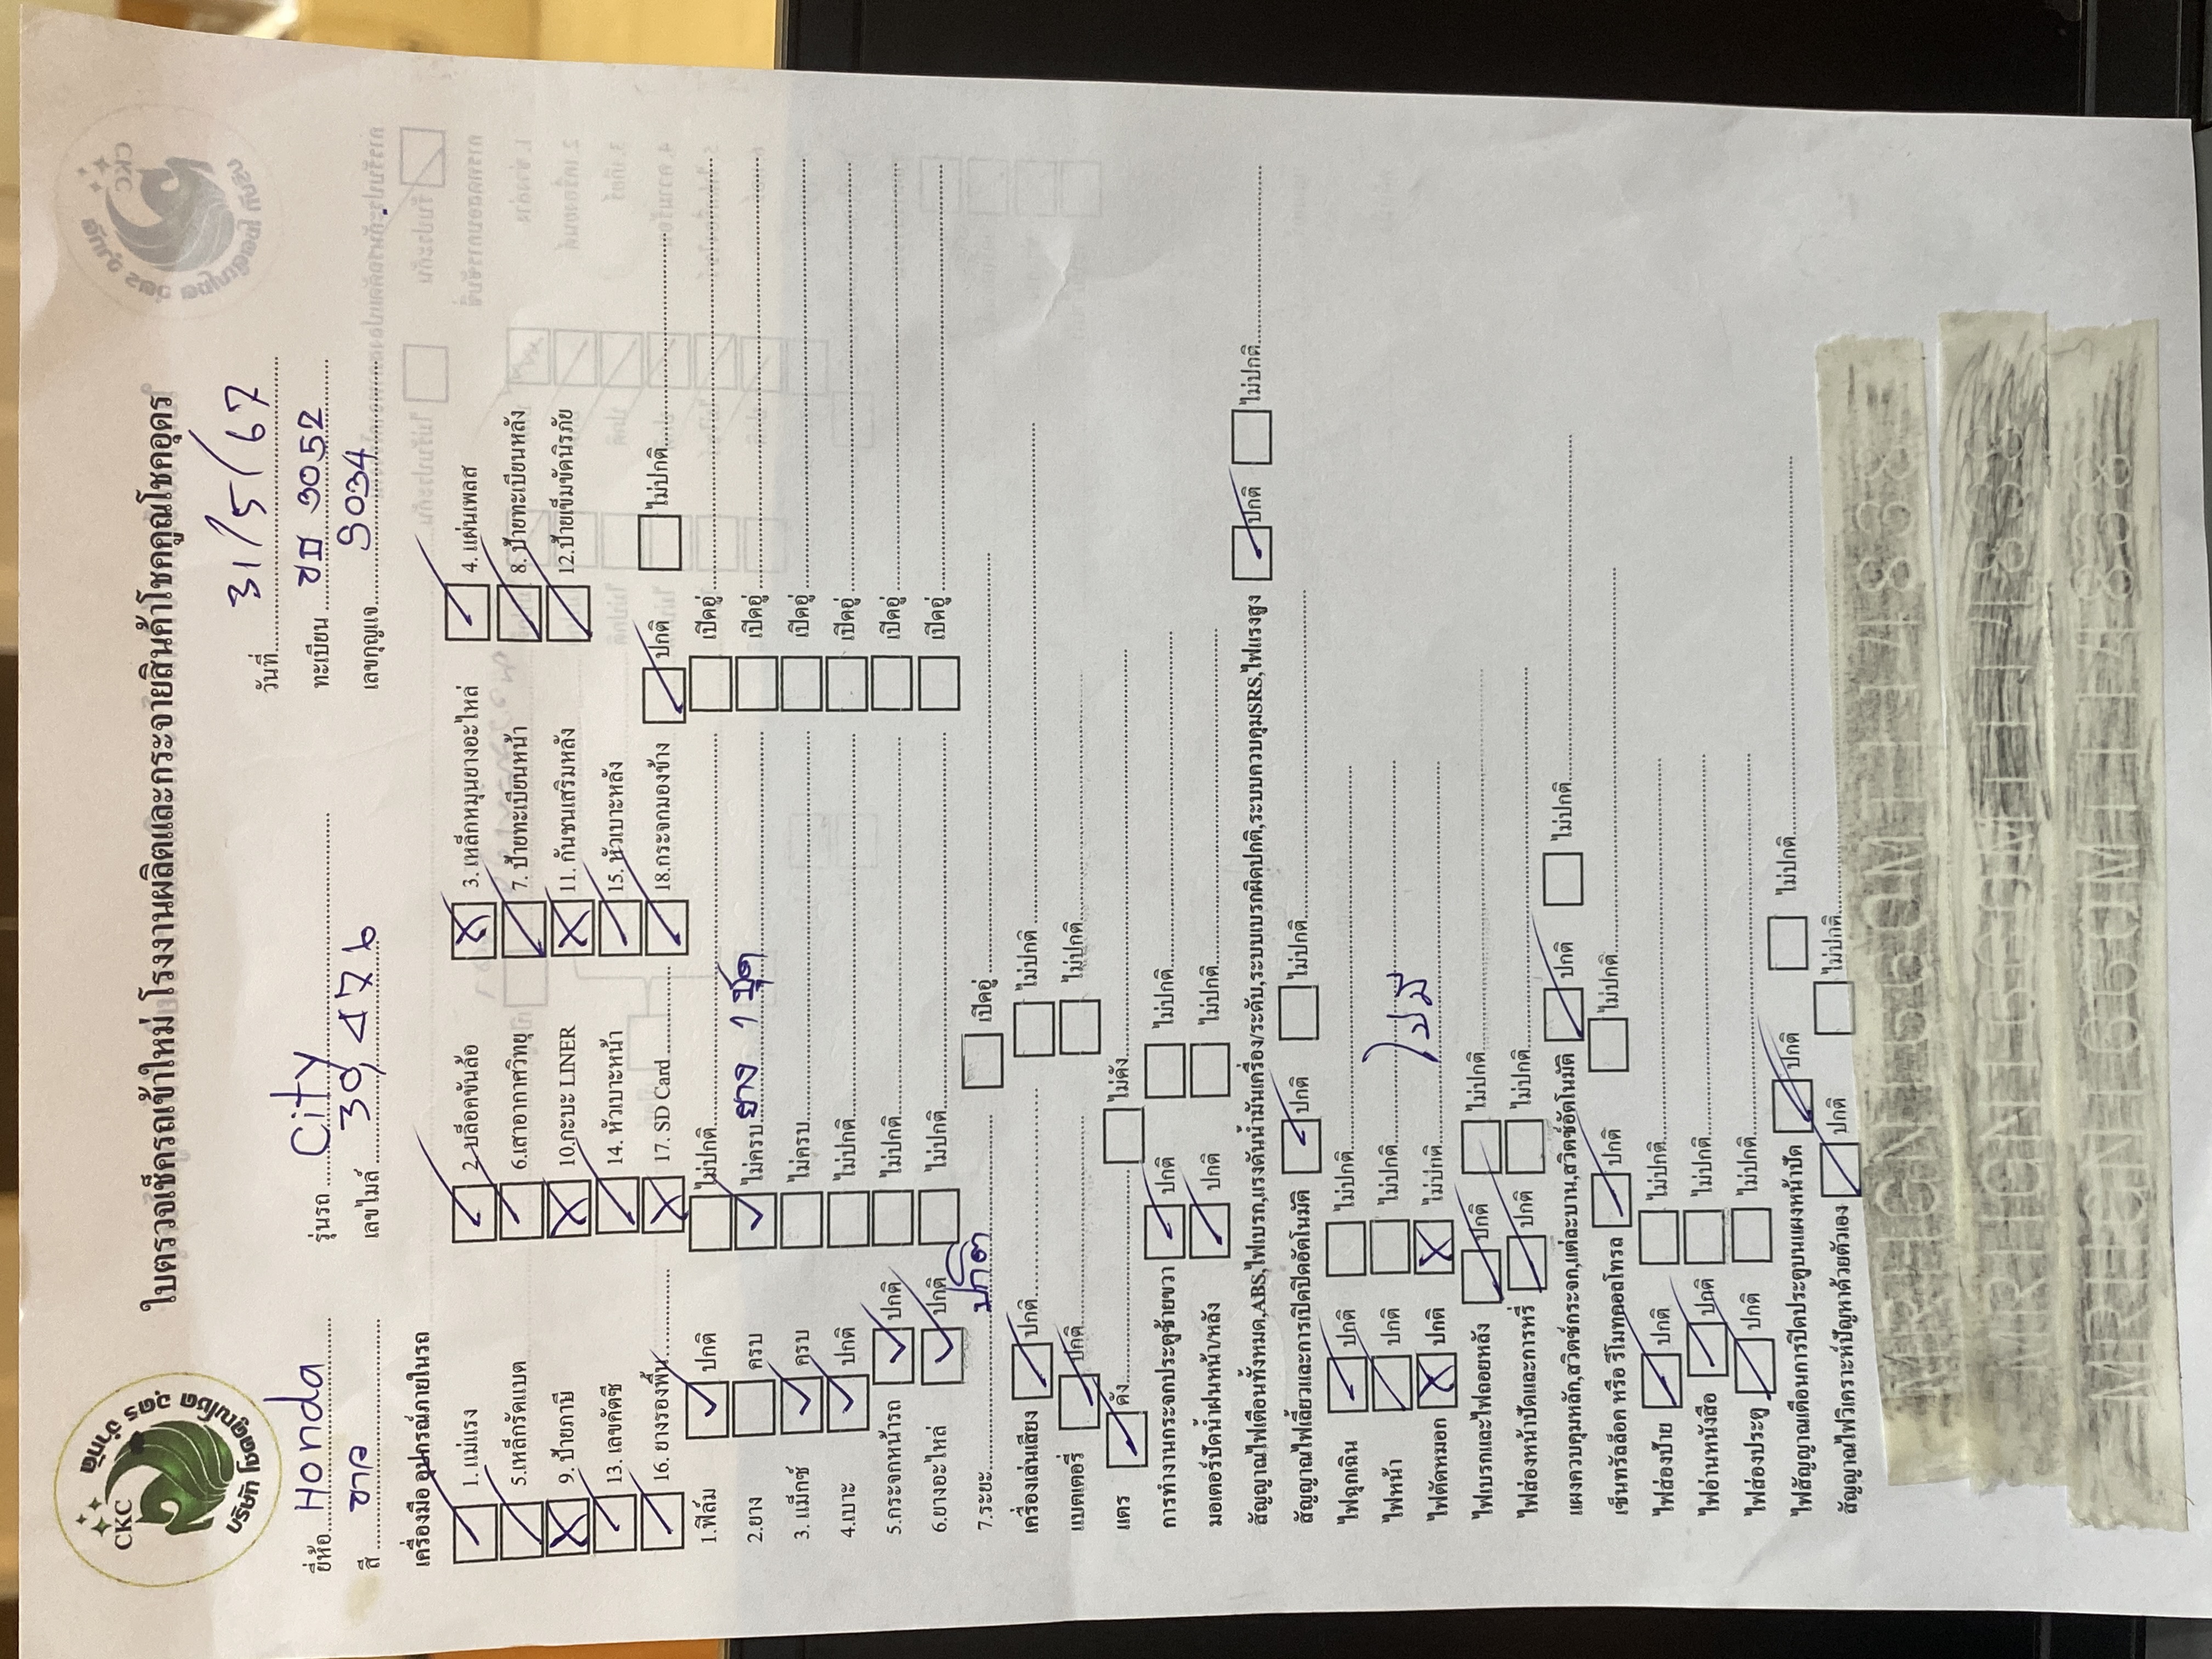 CKC
บริษัท โชคคูณโชค อุดร จำกัด
ใบตรวจเช็ครถเข้าใหม่ โรงงานผลิตและกระจายสินค้าโชคคูณโชคอุดร
วันที่ 31/5/67
ยี่ห้อ Honda รุ่นรถ City ทะเบียน ขฉ 3052
สี ขาว เลขไมล์ 39,476 เลขกุญแจ 9034
เครื่องมือ อุปกรณ์ภายในรถ
1. แม่แรง 2.บล็อคขันล้อ 3. เหล็กหมุนยางอะไหล่ 4. แผ่นเพลส
5.เหล็กรัดแบต 6.เสาอากาศวิทยุ 7. ป้ายทะเบียนหน้า 8. ป้ายทะเบียนหลัง
9. ป้ายภาษี 10.กะบะ LINER 11. กันชนเสริมหลัง 12.ป้ายเข็มขัดนิรภัย
13. เลขคัตซี 14. หัวเบาะหน้า 15. หัวเบาะหลัง
16. ยางรองพื้น 17. SD Card 18.กระจกมองข้าง ปกติ ไม่ปกติ
1.ฟิล์ม ปกติ ไม่ปกติ เปิดอู่
2.ยาง ครบ ไม่ครบ ยาง 1 ชุด เปิดอู่
3. แม็กซ์ ครบ ไม่ครบ เปิดอู่
4.เบาะ ปกติ ไม่ปกติ เปิดอู่
5.กระจกหน้ารถ ปกติ ไม่ปกติ เปิดอู่
6.ยางอะไหล่ ปกติ ไม่ปกติ เปิดอู่
7.ระยะ ปกติ เปิดอู่
เครื่องเล่นเสียง ปกติ ไม่ปกติ
แบตเตอรี่ ปกติ ไม่ปกติ
แตร ดัง ไม่ดัง
การทำงานกระจกประตูซ้ายขวา ปกติ ไม่ปกติ
มอเตอร์ปัดน้ำฝนหน้า/หลัง ปกติ ไม่ปกติ
สัญญาณไฟเตือนทั้งหมด,ABS,ไฟเบรก,แรงดันน้ำมันเครื่อง/ระดับ,ระบบเบรกผิดปกติ,ระบบควบคุมSRS,ไฟแรงสูง ปกติ ไม่ปกติ
สัญญาณไฟเลี้ยวและการเปิดปิดอัตโนมัติ ปกติ ไม่ปกติ
ไฟฉุกเฉิน ปกติ ไม่ปกติ
ไฟหน้า ปกติ ไม่ปกติ
ไฟตัดหมอก ปกติ ไม่ปกติ ไม่มี
ไฟเบรกและไฟถอยหลัง ปกติ ไม่ปกติ
ไฟส่องหน้าปัดและการหรี่ ปกติ ไม่ปกติ
แผงควบคุมหลัก,สวิตซ์กระจก,แต่ละบาน,สวิตซ์อัตโนมัติ ปกติ ไม่ปกติ
เซ็นทรัลล็อค หรือ รีโมทคอลโทรล ปกติ ไม่ปกติ
ไฟส่องป้าย ปกติ ไม่ปกติ
ไฟอ่านหนังสือ ปกติ ไม่ปกติ
ไฟส่องประตู ปกติ ไม่ปกติ
ไฟสัญญาณเตือนการปิดประตูบนแผงหน้าปัด ปกติ ไม่ปกติ
สัญญาณไฟวิเคราะห์ปัญหาด้วยตัวเอง ปกติ ไม่ปกติ